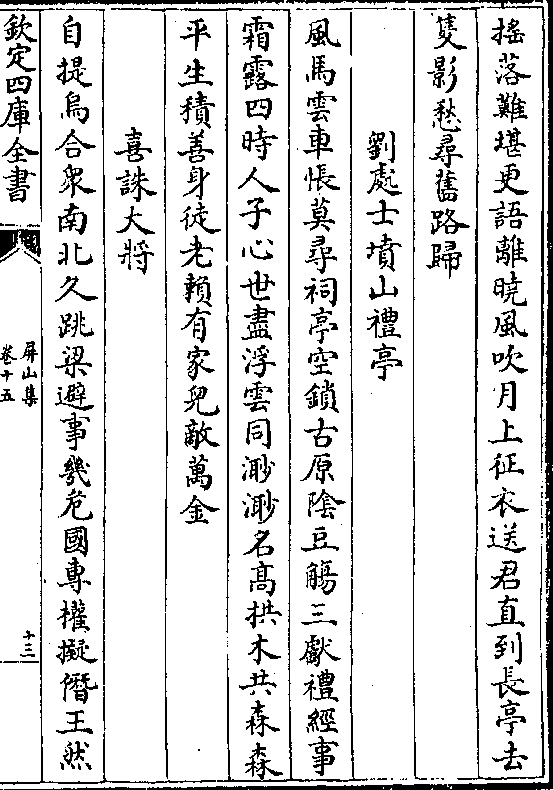 搖落難堪更語離曉風吹月上征衣送君直到長亭去
隻影愁尋舊路歸
劉處士墳山禮亭
風馬雲車悵莫尋祠亭空鎖古原陰豆觴三獻禮經事
霜露四時人子心世盡浮雲同渺渺名髙拱木共森森
平生積善身徒老賴有家兒敵萬金
喜誅大將
自提烏合衆南北久跳梁避事幾危國專權擬僭王然
欽定四庫全書
屏山集
卷十五
十三